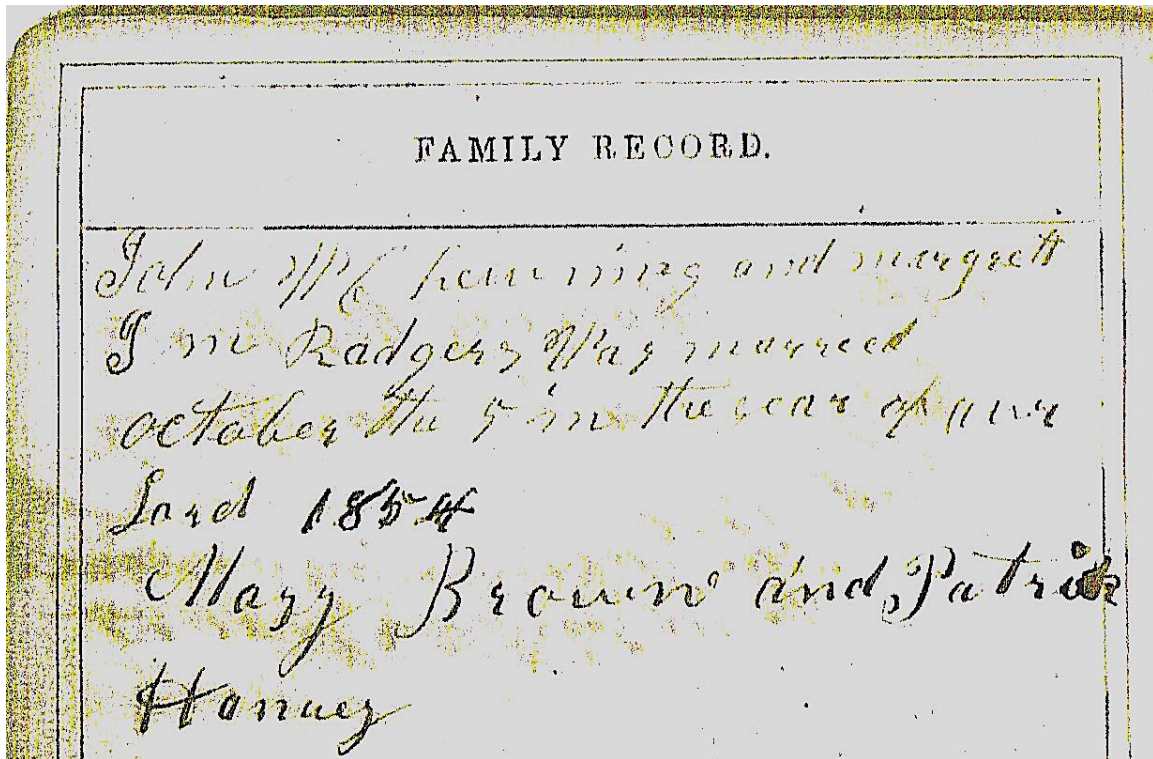 FAMILY RECORD.
John Mc and margrett
J m Radgers Was marreed
october the 5 in the year of our
Lord 1854
Mary Brown and Patrick